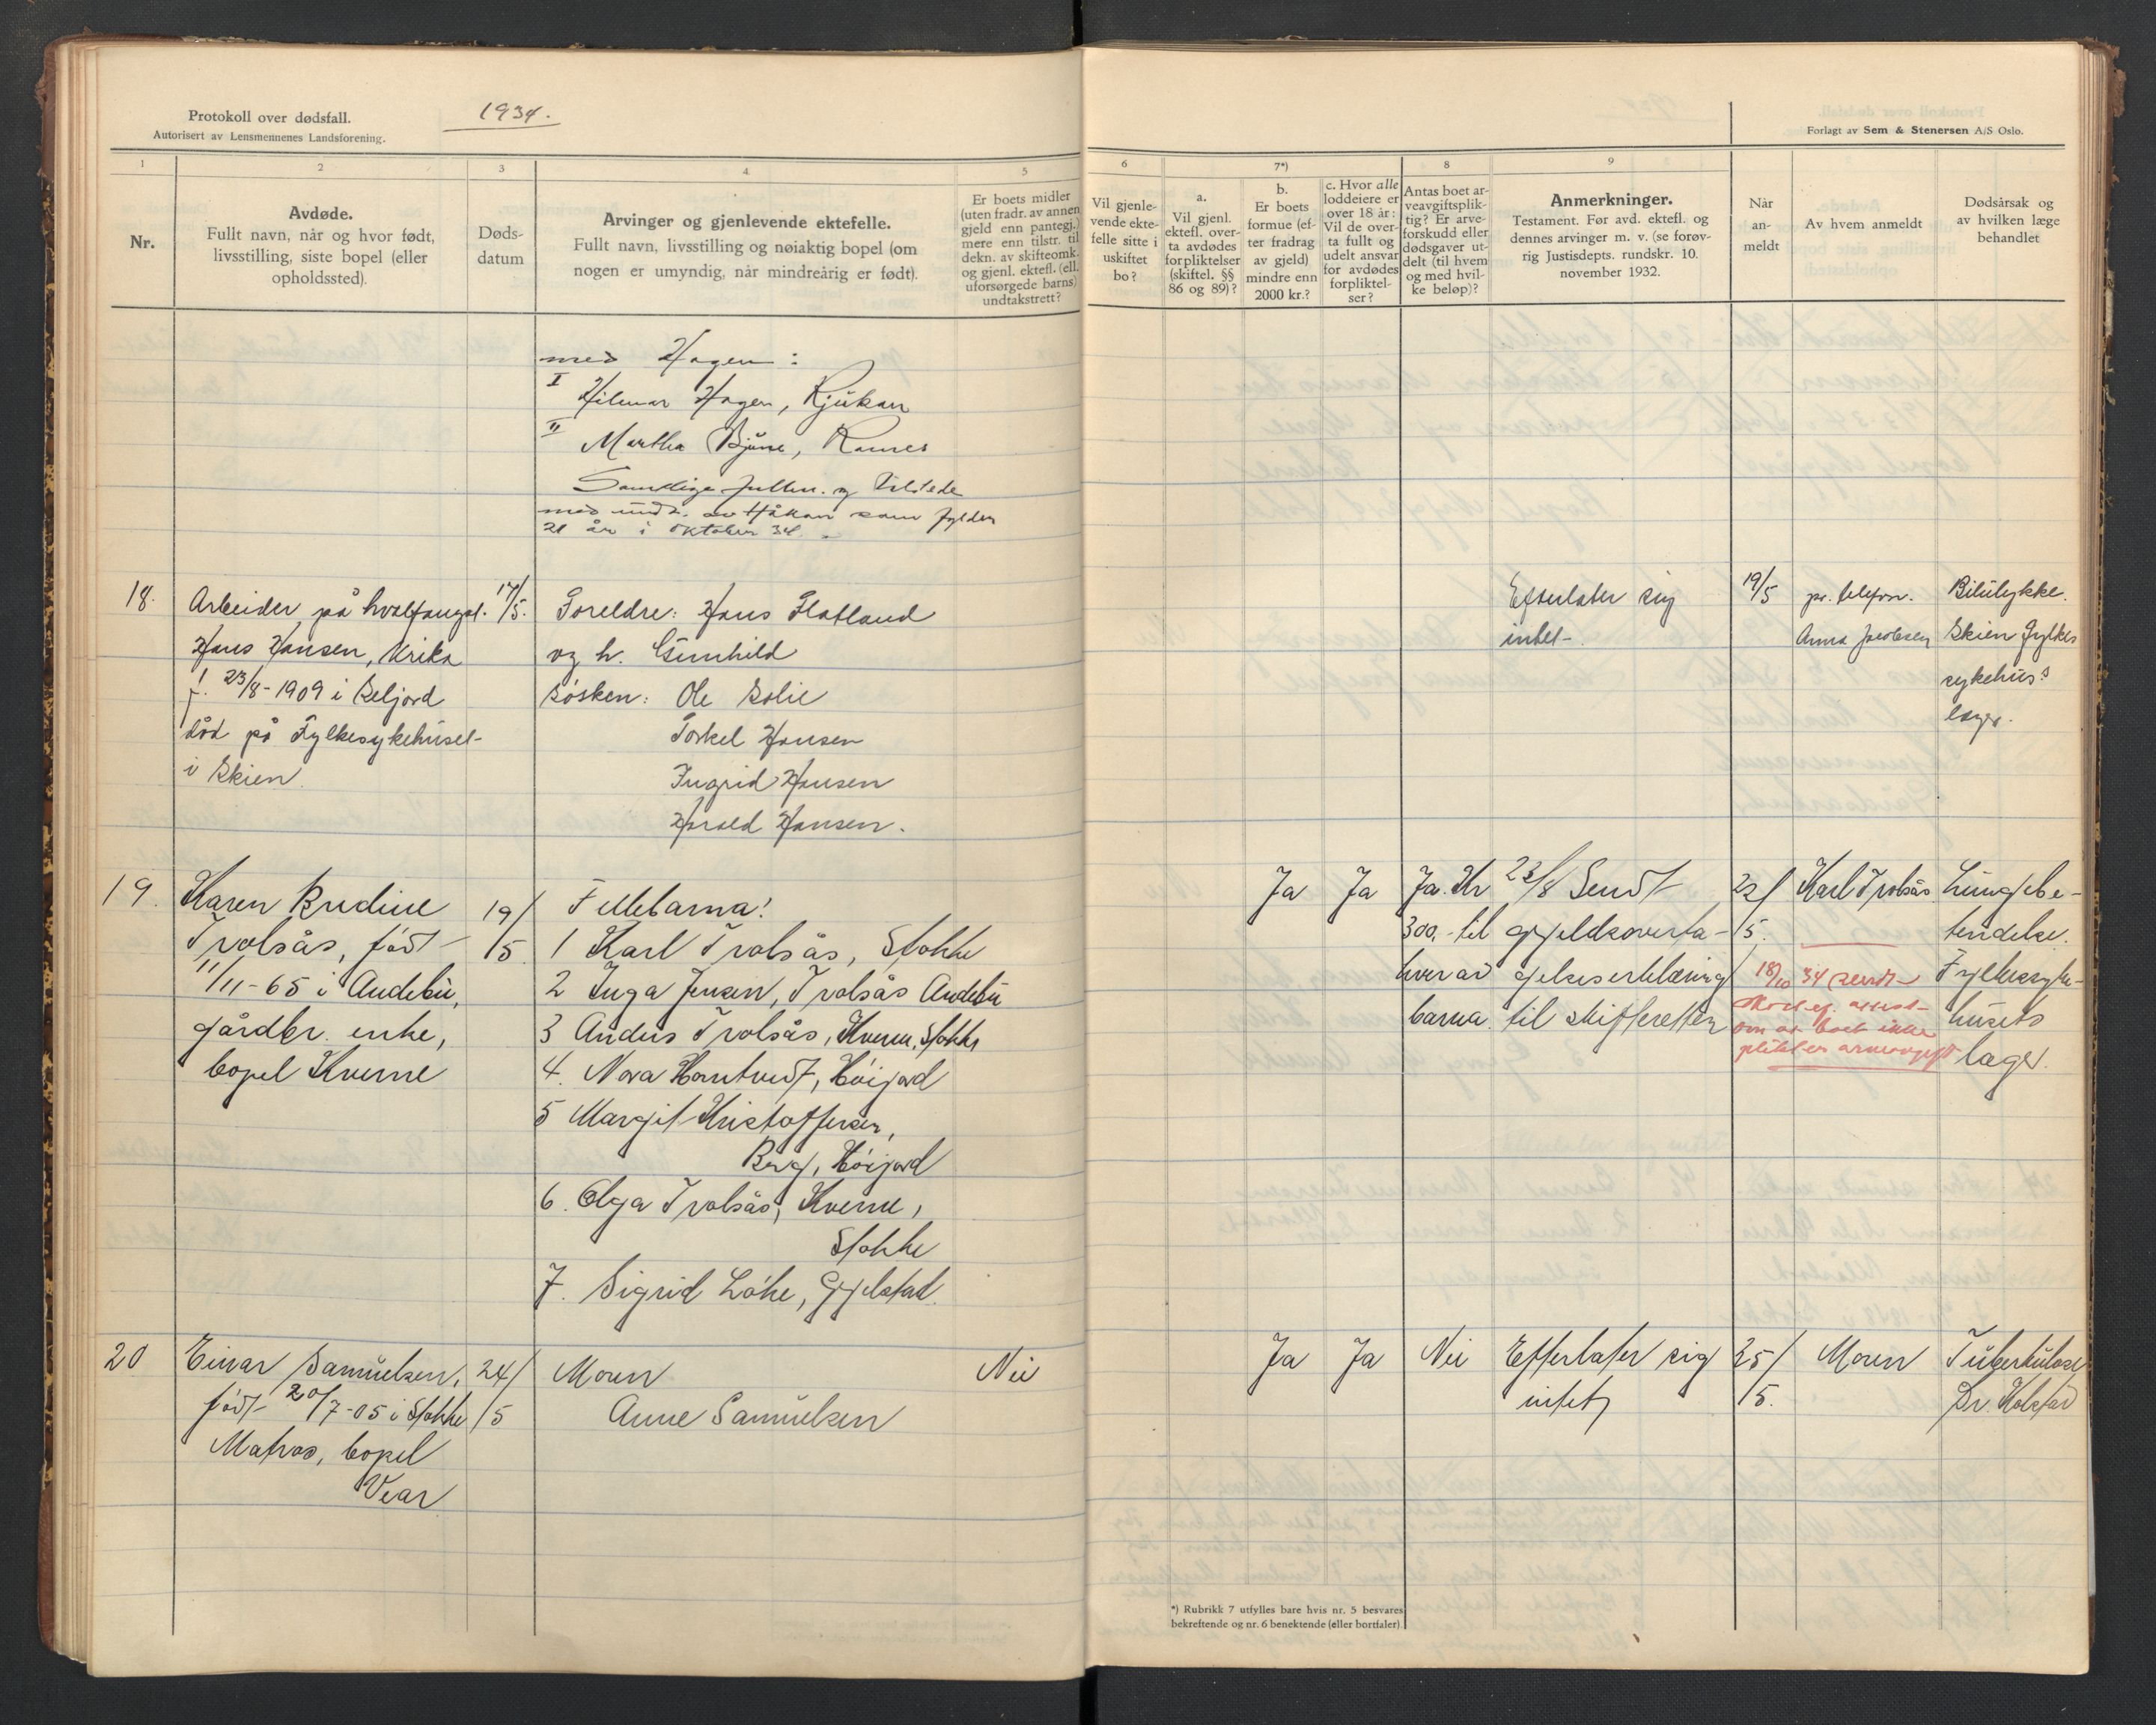 Protokoll over dødsfall.
Autorisert av Lensmennenes Landsforening.
1934.
Forlagt av Sem & Stenersen A/S Oslo.
1
2
3
4
5
6
7*)
8
9
Nr.
Avdøde.
Fullt navn, når og hvor født,
livsstilling, siste bopel (eller
opholdssted).
Døds-
datum
Arvinger og gjenlevende ektefelle.
Fullt navn, livsstilling og nøiaktig bopel (om
nogen er umyndig, når mindreårig er født).
Er boets midler
(uten fradr. av annen
gjeld enn pantegj.)
mere enn tilstr. til
dekn. av skifteomk.
og gjenl. ektefl. (ell.
uforsørgede barns)
undtakstrett?
Vil gjenle-
vende ekte-
felle sitte i
uskiftet
bo?
a.
Vil gjenl.
ektefl. over-
ta avdødes
forpliktelser
(skiftel. §§
86 og 89)?
b.
Er boets
formue (ef-
ter fradrag
av gjeld)
mindre enn
2000 kr.?
c. Hvor alle
loddeiere er
over 18 år:
Vil de over-
ta fullt og
udelt ansvar
for avdødes
forpliktel-
ser?
Antas boet ar-
veavgiftsplik-
tig? Er arve-
forskudd eller
dødsgaver ut-
delt (til hvem
og med hvil-
ke beløp)?
Anmerkninger.
Testament. Før avd. ektefl. og
dennes arvinger m. v. (se forøv-
rig Justisdepts. rundskr. 10.
november 1932.
Når
an-
meldt
Av hvem anmeldt
Dødsårsak og
av hvilken læge
behandlet
med Hagen:
I Hilmar Hagen, Rjukan
II Martha Bjune, Ramnes
Samtlige fullm. og tilstede
med undt. av Håkon som fylder
21 år i oktober 34.
18.
Arbeider på hvalfangst.
Hans Hansen, Krika
f. 23/8-1909 i Seljord
død på Fylkesykehuset
i Skien.
17/5.
Foreldre: Hans Flatland
og h. Gunhild
søsken: Ole Solie
Torkel Hansen
Ingrid Hansen
Harald Hansen.
Efterlater sig
intet.
19/5
pr. telefon.
Anna Jacobsen
Bilulykke.
Skien Fylkes
sykehus's
læge.
19.
Karen Rudine
Trolsås, født
11/11-65 i Andebu,
gårdbr. enke,
bopel Kverne
19/
/5
Fellebarna:
1 Karl Trolsås, Stokke
2 Inga Jensen, Trolsås Andebu
3 Anders Trolsås, Kverne, Stokke
4. Nora Horntvedt, Höijord
5 Margit Kristoffersen,
Berg, Höijord
6. Olga Trolsås, Kverne,
Stokke
7. Sigrid Löke, Gjelstad.
Ja
Ja
Ja. Kr
300,- til
hver av
barna.
23/8 Sendt
gjeldsoverta-
gelseserklæring
til skifteretten
22/
/5.
Karl Trolsås
18/10 34 sendt
om at boet ikke
Lungebe-
tendelse.
Fylkessyke-
husets
læge.
20
Einar Samuelsen,
født 20/7-05 i Stokke
Matros, bopel
Vear
24/
/5
Moren
Anne Samuelsen
Nei
Ja
Ja
Nei
Efterlater sig
intet
25/
/5.
Moren
Tuberkulose
Dr. Holstad
*) Rubrikk 7 utfylles bare hvis nr. 5 besvares
bekreftende og nr. 6 benektende (eller bortfaler).